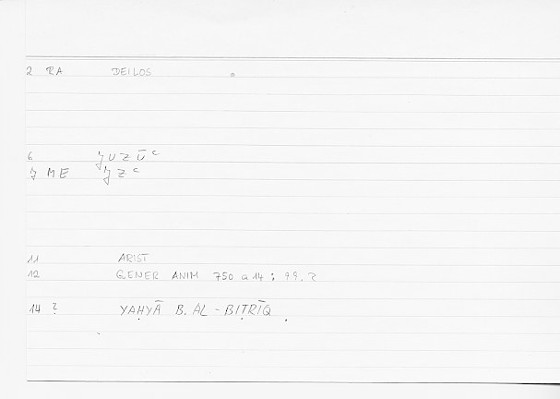 2 RA DEILOS
6 JUZŪʿ
7 ME JZʿ
11 ARIST
12 GENER ANIM 750 a 14 ; 99.2
14 2 YAḤYĀ B. AL-BIṬRĪQ